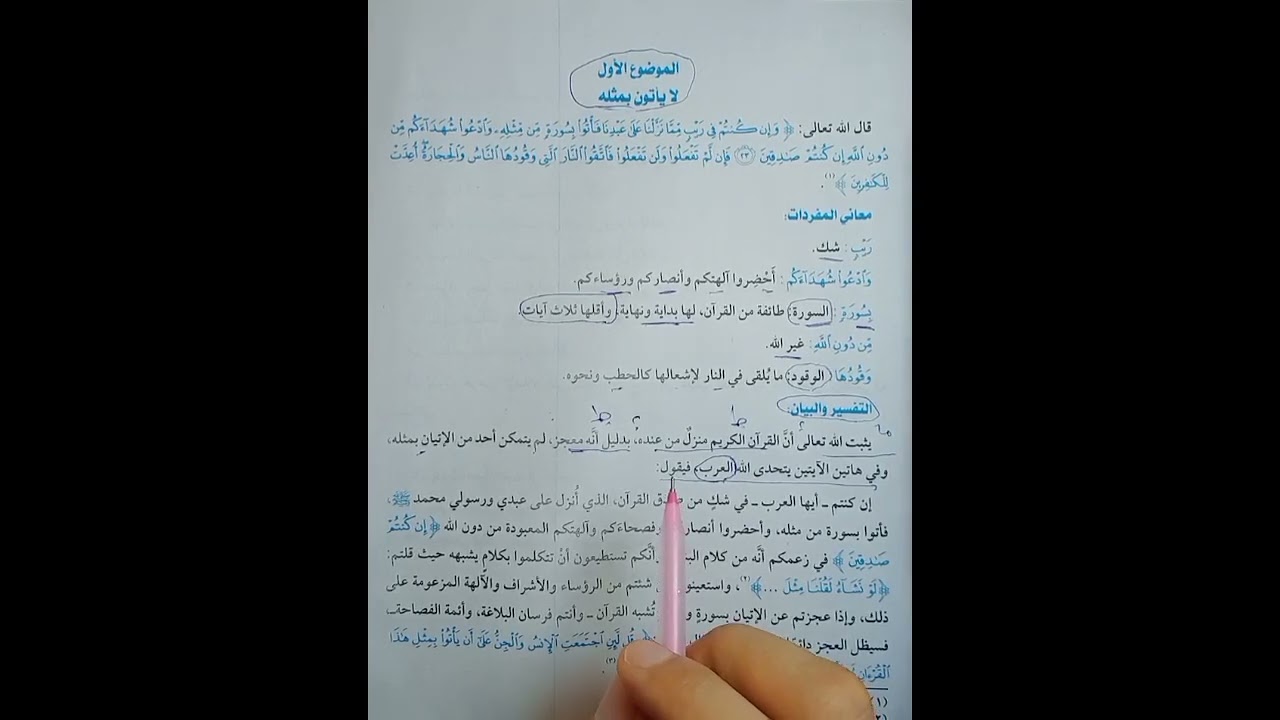 الموضوع الأول
لا يأتون بمثله
قال الله تعالى: ﴿ وَإِن كُنتُمْ فِي رَيْبٍ مِّمَّا نَزَّلْنَا عَلَىٰ عَبْدِنَا فَأْتُوا۟ بِسُورَةٍ مِّن مِّثْلِهِۦ وَٱدْعُوا۟ شُهَدَآءَكُم مِّن
دُونِ ٱللَّهِ إِن كُنتُمْ صَـٰدِقِينَ ۝٢٣ فَإِن لَّمْ تَفْعَلُوا۟ وَلَن تَفْعَلُوا۟ فَٱتَّقُوا۟ ٱلنَّارَ ٱلَّتِى وَقُودُهَا ٱلنَّاسُ وَٱلْحِجَارَةُ ۖ أُعِدَّتْ
لِلْكَـٰفِرِينَ ﴾(١).
معاني المفردات:
رَيْبٍ: شك.
وَٱدْعُوا۟ شُهَدَآءَكُم: أَحْضِروا آلهتكم وأنصاركم ورؤساءكم.
بِسُورَةٍ: السورة: طائفة من القرآن، لها بداية ونهاية، وأقلها ثلاث آيات.
مِّن دُونِ ٱللَّهِ: غير الله.
وَقُودُهَا: الوقود: ما يُلقى في النار لإشعالها كالحطب ونحوه.
التفسير والبيان:
يثبت الله تعالى أنَّ القرآن الكريم منزلٌ من عنده، بدليل أنَّه معجز، لم يتمكن أحد من الإتيان بمثله،
وفي هاتين الآيتين يتحدى الله العرب، فيقول:
إن كنتم ـ أيها العرب ـ في شكٍ من صدق القرآن، الذي أُنزل على عبدي ورسولي محمد ﷺ،
فأتوا بسورة من مثله، وأحضروا وفصحاءكم وآلهتكم المعبودة من دون الله ﴿ إِن كُنتُمْ
صَـٰدِقِينَ ﴾ في زعمكم أنَّه من كلام أنَّكم تستطيعون أنْ تتكلموا بكلامٍ يشبهه حيث قلتم:
﴿لَوْ نَشَآءُ لَقُلْنَا مِثْلَ ...﴾(٢)، شئتم من الرؤساء والأشراف والآلهة المزعومة على
ذلك، وإذا عجزتم عن الإتيان بسورةٍ تُشبه القرآن ـ وأنتم فرسان البلاغة، وأئمة الفصاحة ـ
فسيظل العجز ﴿ قُل لَّئِنِ ٱجْتَمَعَتِ ٱلْإِنسُ وَٱلْجِنُّ عَلَىٰٓ أَن يَأْتُوا۟ بِمِثْلِ هَـٰذَا
ٱلْقُرْءَانِ (٣)
(١)